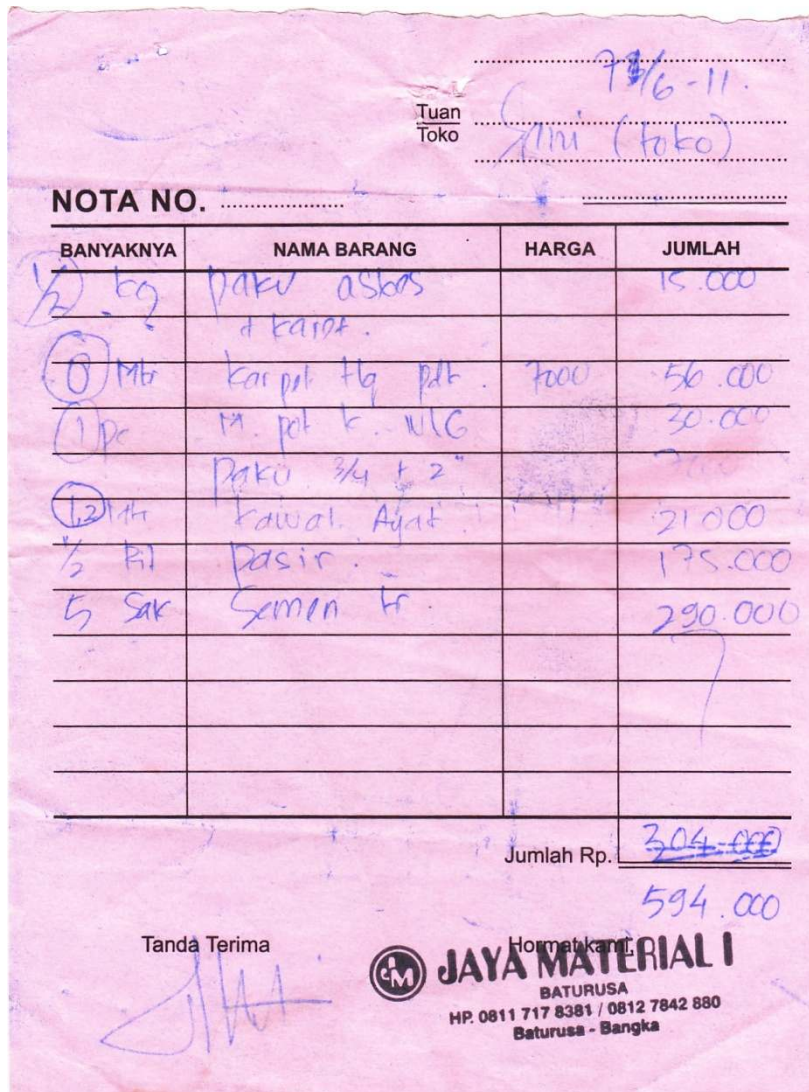 7/6-11.
Tuan
Toko
(toko)
NOTA NO.
BANYAKNYA NAMA BARANG HARGA JUMLAH
1/2 kg paku asbes 15.000
+ karet.
Mtr karpet tlg pdk. 7000 56.000
1 pc M. pot k. 30.000
paku 3/4 + 2" 7000
1,2 Mtr kawat Ayat. 21000
1/2 Ril pasir. 175.000
5 Sak Semen tr. 290.000
Jumlah Rp. 304.000
594.000
Tanda Terima Hormat kami,
JM JAYA MATERIAL I
BATURUSA
HP. 0811 717 8381 / 0812 7842 880
Baturusa - Bangka